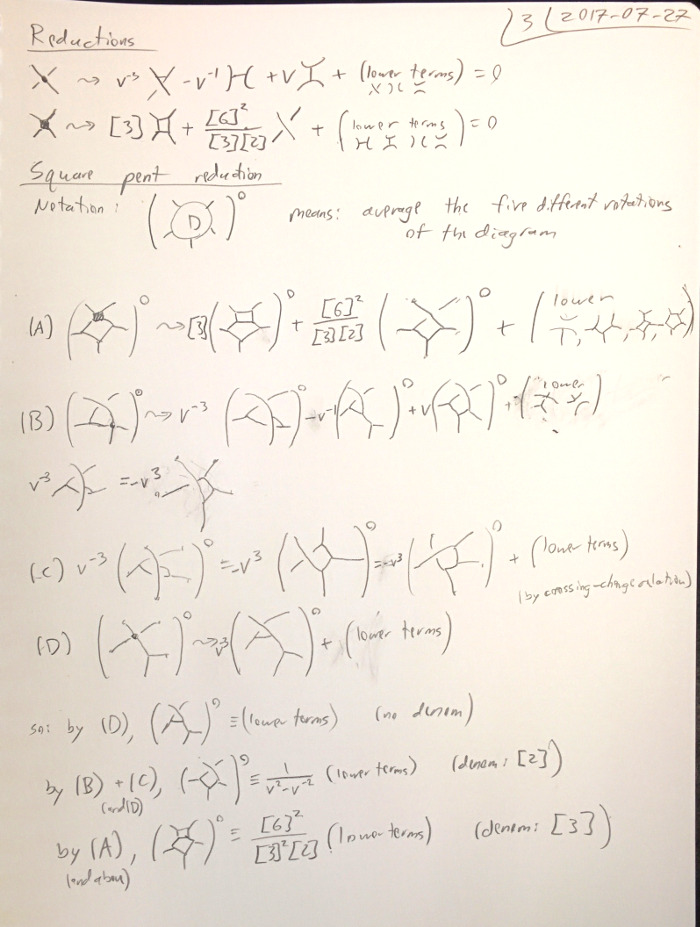 3 2017-07-27
Reductions
v⁻³ - v⁻¹ + v + (lower terms) = 0
[3] + [6]² / [3][2] + (lower terms) = 0
Square pent reduction
Notation: (D)° means: average the five different rotations
of the diagram
(A) ( )° [3] ( )° + [6]² / [3][2] ( )° + (lower )
(B) ( )° v⁻³ ( )° - v⁻¹ ( )° + v ( )° + (lower )
v³ = -v³
(C) v⁻³ ( )° = -v³ ( )° = -v³ ( )° + (lower terms)
(by crossing-change relation)
(D) ( )° v³ ( )° + (lower terms)
so: by (D), ( )° ≡ (lower terms) (no denom)
by (B) + (C), ( )° ≡ 1 / v²-v⁻² (lower terms) (denom: [2])
(and D)
by (A), ( )° ≡ [6]² / [3]²[2] (lower terms) (denom: [3])
(and above)